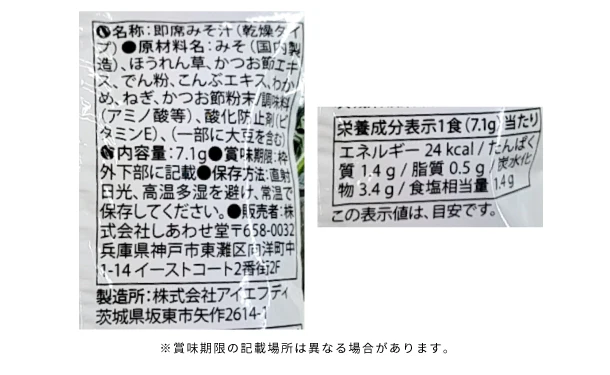 ●名称：即席みそ汁（乾燥タイ
プ）●原材料名：みそ（国内製
造）、ほうれん草、かつお節エキ
ス、でん粉、こんぶエキス、わか
め、ねぎ、かつお節粉末/調味料
（アミノ酸等）、酸化防止剤（ビ
タミンE）、（一部に大豆を含む）
●内容量：7.1g●賞味期限：枠
外下部に記載●保存方法：直射
日光、高温多湿を避け、常温で
保存してください。●販売者：株
式会社しあわせ堂〒658-0032
兵庫県神戸市東灘区向洋町中
1-14 イーストコート2番街2F
製造所：株式会社アイエフディ
茨城県坂東市矢作2614-1
栄養成分表示1食（7.1g）当たり
エネルギー 24 kcal / たんぱく
質 1.4 g / 脂質 0.5 g / 炭水化
物 3.4 g / 食塩相当量 1.4 g
この表示値は、目安です。
※賞味期限の記載場所は異なる場合があります。